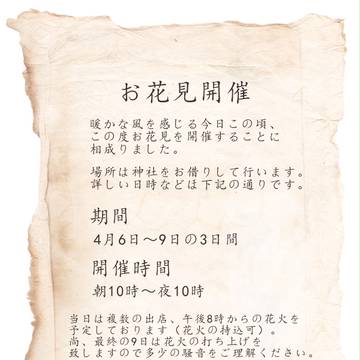 お花見開催
暖かな風を感じる今日この頃、
この度お花見を開催することに
相成りました。
場所は神社をお借りして行います。
詳しい日時などは下記の通りです。
期間
4月6日〜9日の3日間
開催時間
朝10時〜夜10時
当日は複数の出店、午後8時からの花火を
予定しております（花火の持込可）。
尚、最終の9日は花火の打ち上げを
致しますので多少の騒音をご理解ください。